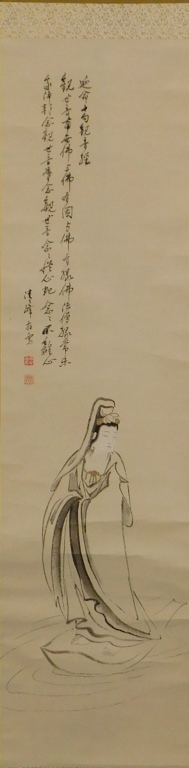 延命十句観音経
観世音南無佛与佛有因与佛有縁佛法僧縁常楽
我浄朝念観世音暮念観世音念々従心起念々不離心